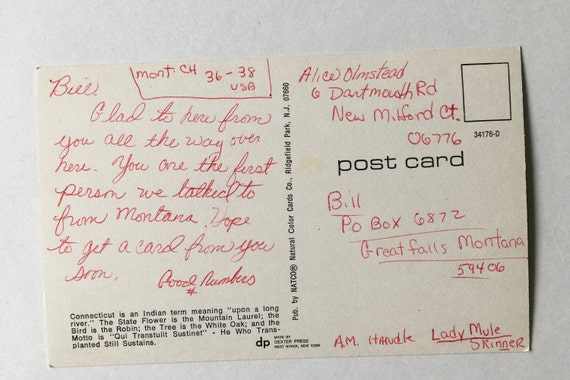 Mont. CH 36-38
USB
Bill
Glad to here from
you all the way over
here. You are the first
person we talked to
from Montana. Hope
to get a card from you
soon.
Good Numbers
#
Connecticut is an Indian term meaning "upon a long
river." The State Flower is the Mountain Laurel; the
Bird is the Robin; the Tree is the White Oak; and the
Motto is "Qui Transtulit Sustinet" - He Who Trans-
planted Still Sustains.
Pub. by NATCO® Natural Color Cards Co., Ridgefield Park, N.J. 07660
dp
MADE BY
DEXTER PRESS
WEST NYACK, NEW YORK
Alice Olmstead
6 Dartmouth Rd
New Milford Ct.
06776
34176-D
post card
Bill
Po Box 6872
Great falls Montana
59406
A.M. Handle Lady Mule
Skinner